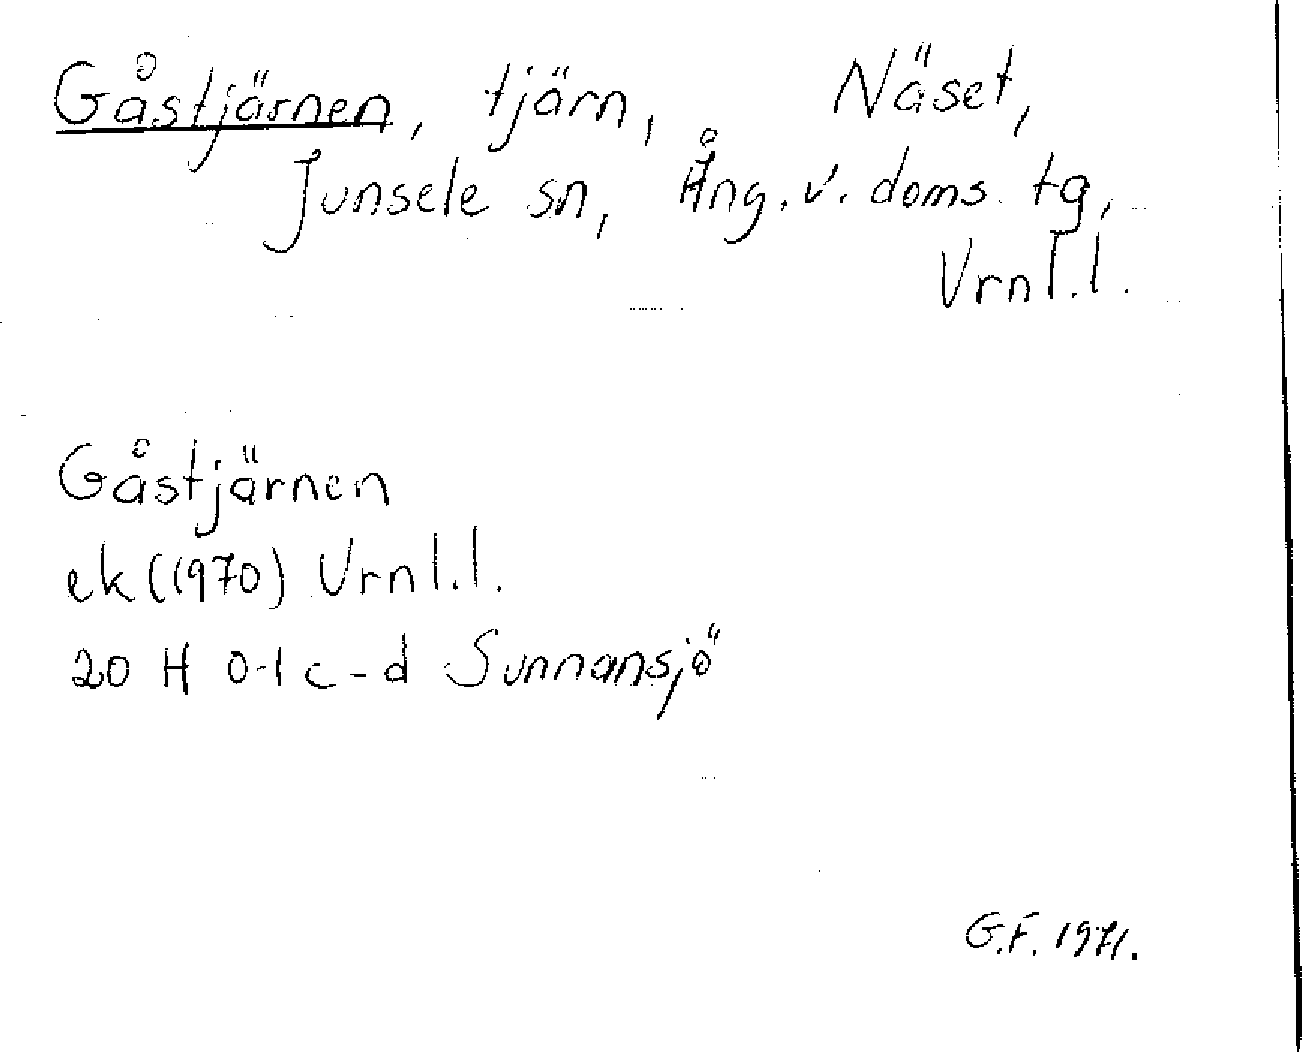 Gåstjärnen, tjärn, Näset,
Junsele sn, Ång. v. doms. tg,
Vrnl.l.
Gåstjärnen
ek (1970) Vrnl.l.
20 H 0-1 c-d Sunnansjö
G.F. 1971.